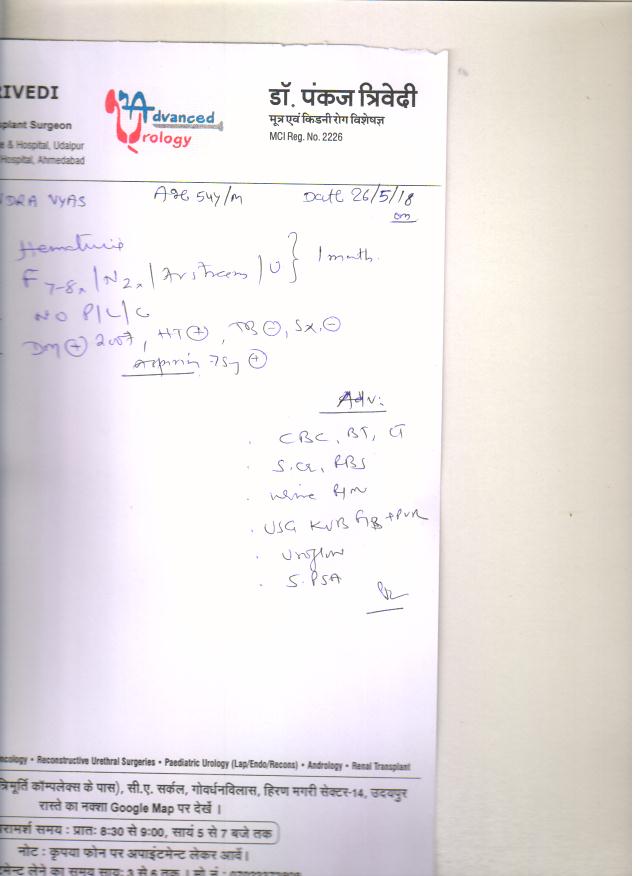 RIVEDI
splant Surgeon
e & Hospital, Udaipur
Hospital, Ahmedabad
Advanced
Urology
डॉ. पंकज त्रिवेदी
मूत्र एवं किडनी रोग विशेषज्ञ
MCI Reg. No. 2226
NDRA VYAS Age 54y/m Date 26/5/18
Hematuria
F 7-8x / N 2x / / U } 1 month.
NO P/L/C
DM (+) 2007, HT (+), TB (-), Sx. (-)
75mg (+)
Adv:
. CBC, BT, CT
. S.Cr, RBS
. Urine R/M
. USG KUB + PVR
. Uroflow
. S. PSA
ncology • Reconstructive Urethral Surgeries • Paediatric Urology (Lap/Endo/Recons) • Andrology • Renal Transplant
त्रिमूर्ति कॉम्पलेक्स के पास), सी.ए. सर्कल, गोवर्धनविलास, हिरण मगरी सेक्टर-14, उदयपुर
रास्ते का नक्शा Google Map पर देखें ।
रामर्श समय : प्रातः 8:30 से 9:00, सायं 5 से 7 बजे तक
नोट : कृपया फोन पर अपाइंटमेन्ट लेकर आवें।
मेन्ट लेने का समय सायः 3 से 6 तक । मो.नं. :